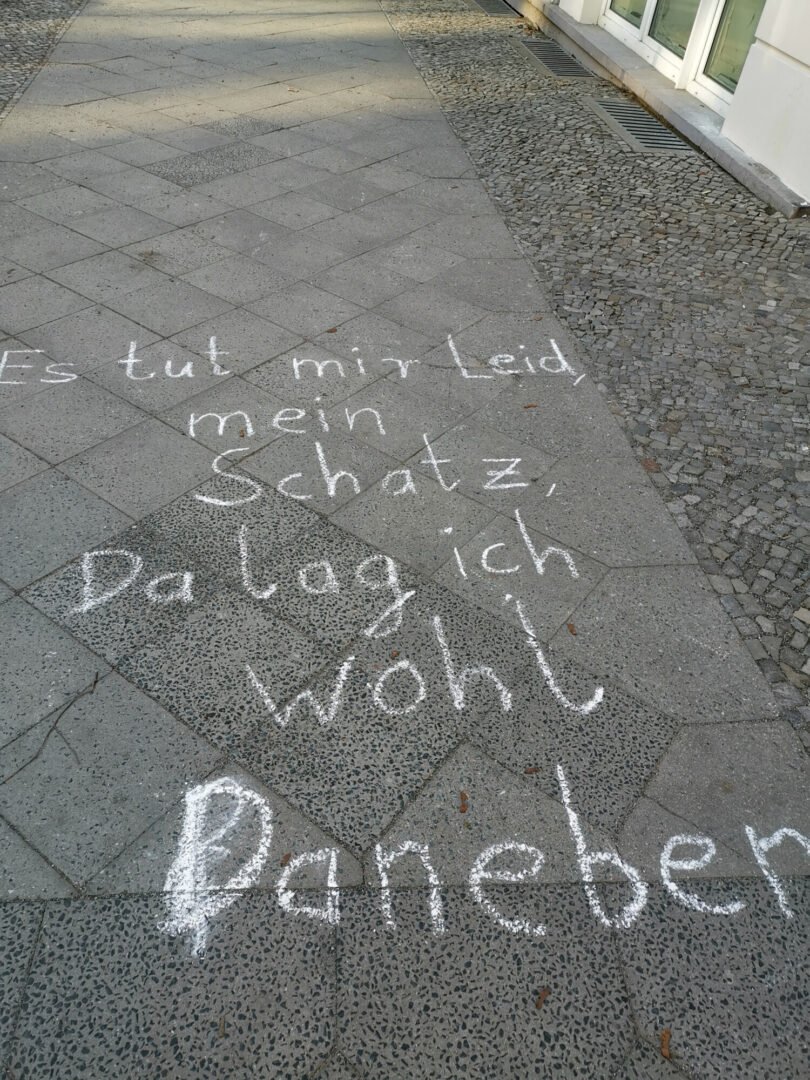 Es tut mir Leid,
mein
Schatz,
Da lag ich
wohl
Daneben